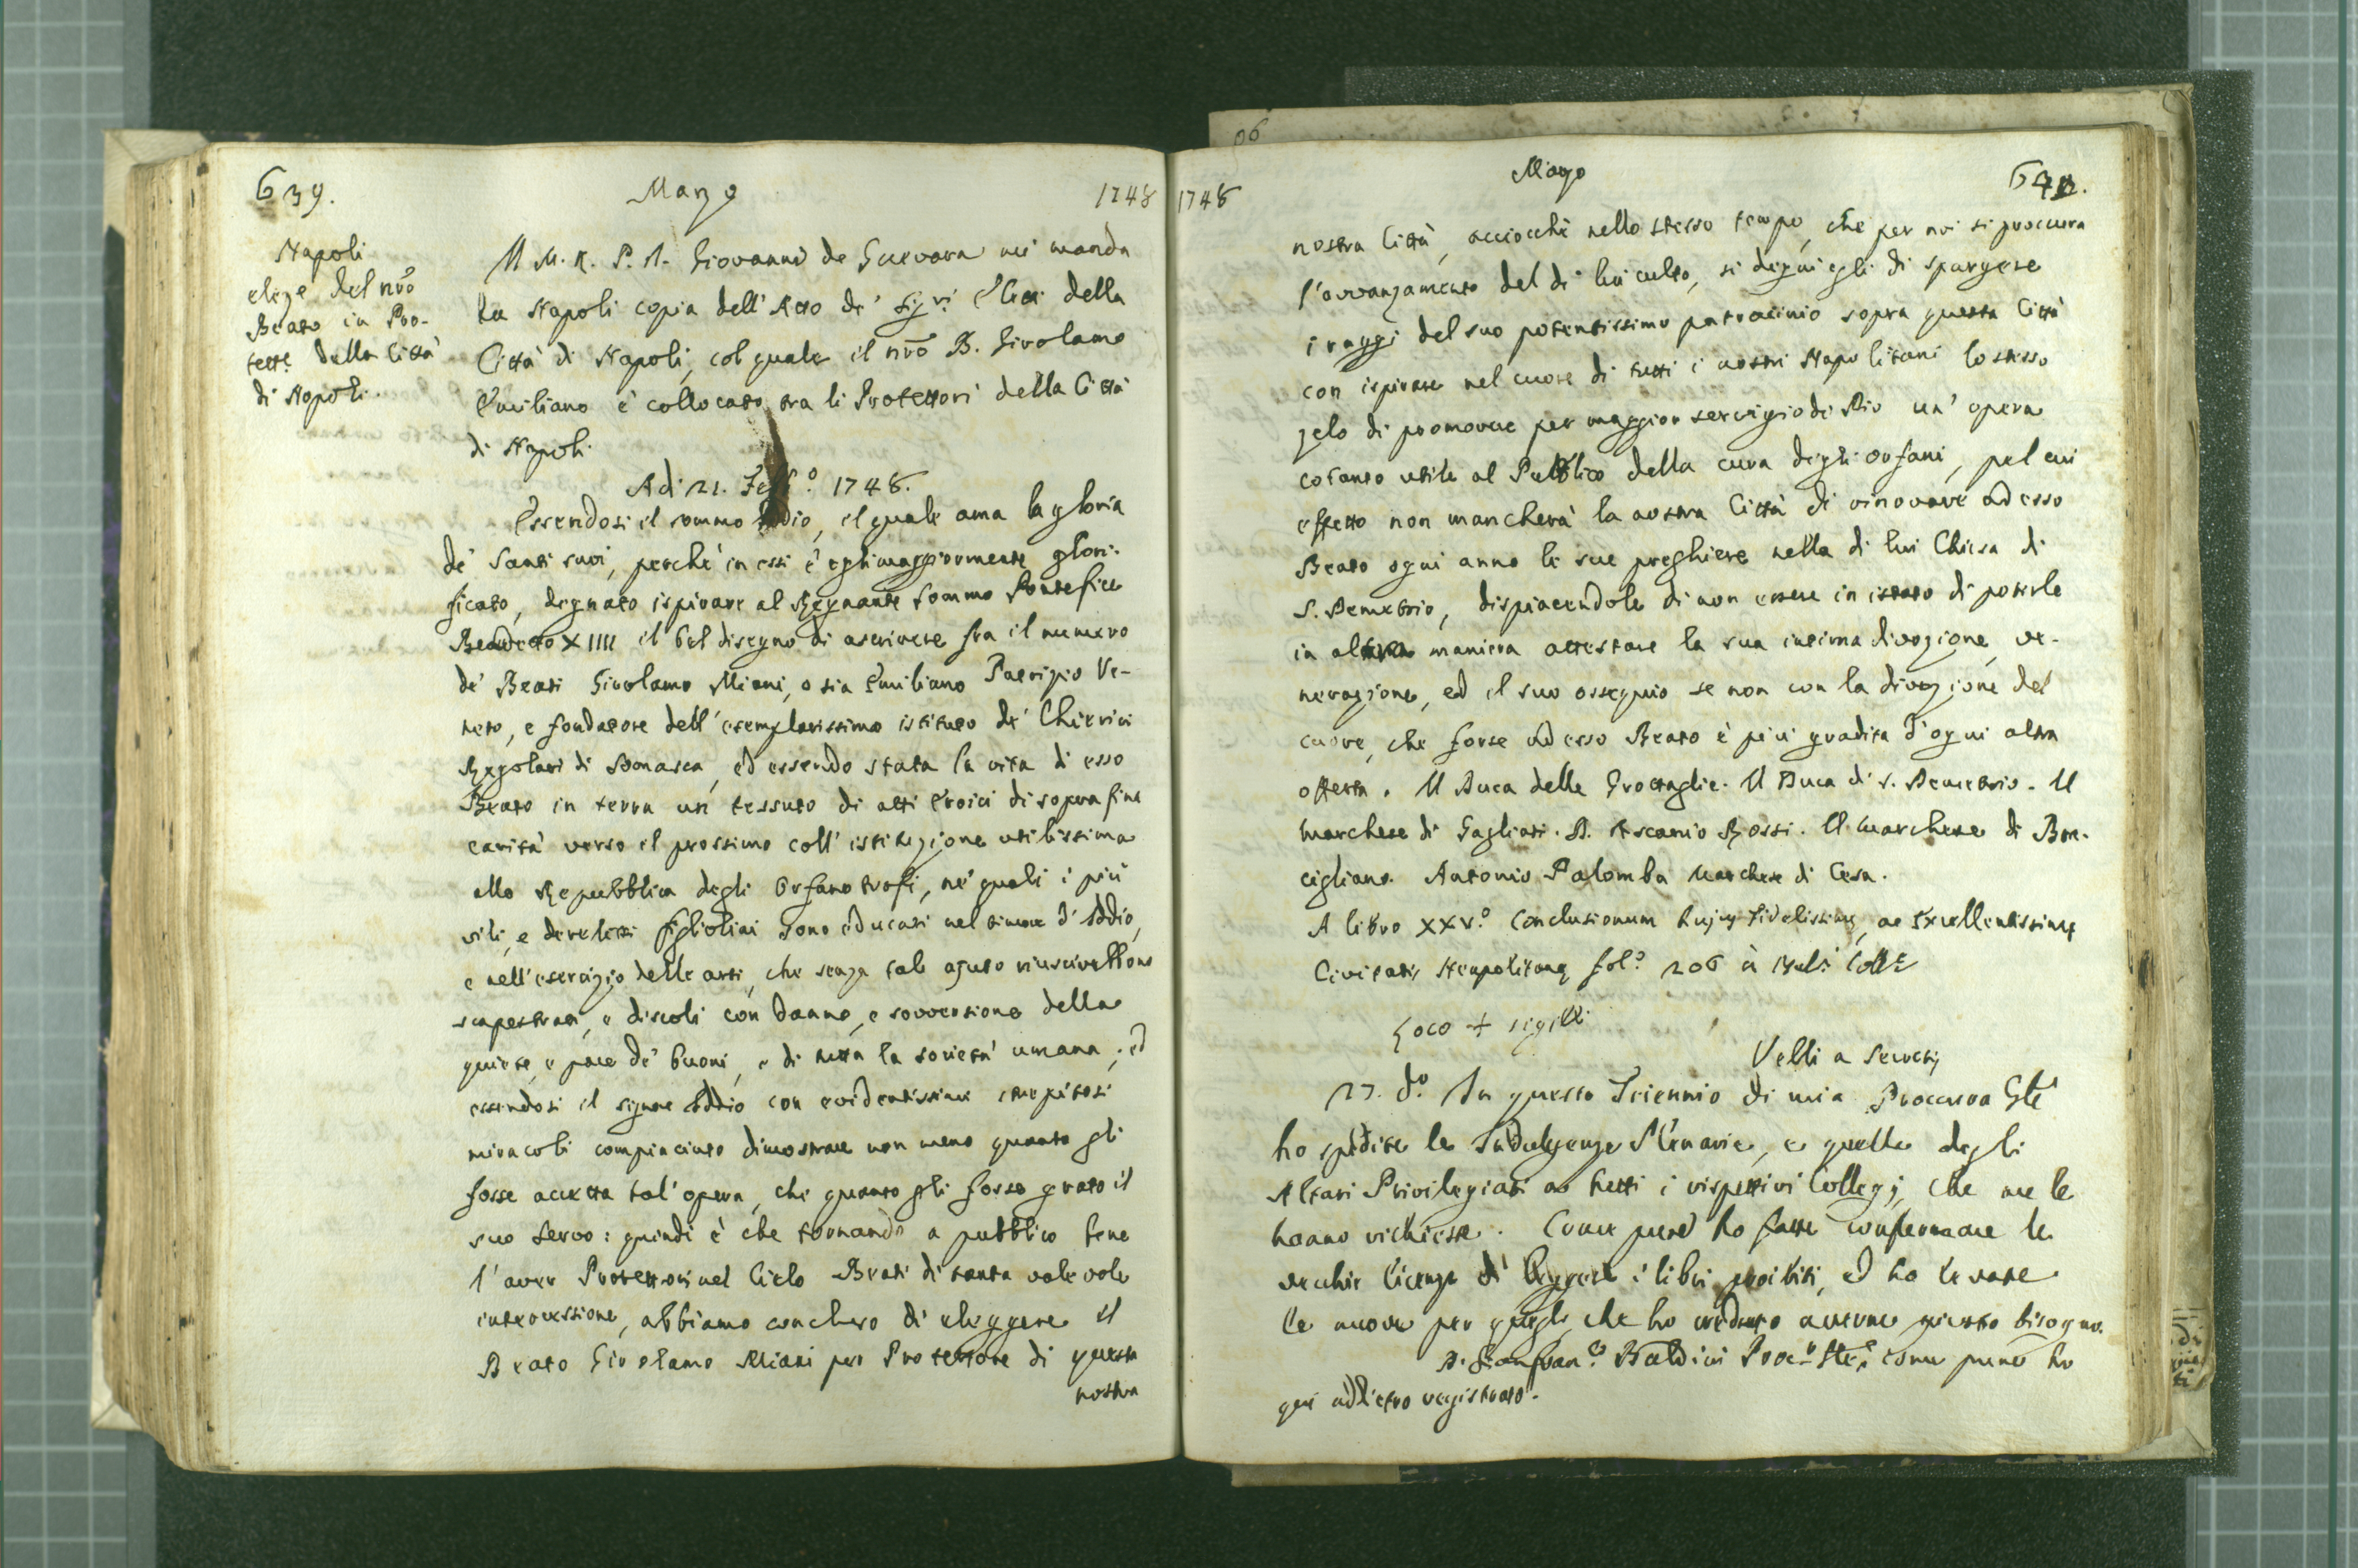 639.
Marzo
1748
Napoli
elege del nrõ
Beato in Pro-
tett.e della Città
di Napoli.
Il M. R. P. D. Giovanni de Guevara mi manda
da Napoli copia dell'Atto de' Sig.ri Eletti della
Città di Napoli, col quale il nrõ B. Girolamo
Emiliano è collocato tra li Protettori della Città
di Napoli.
Adi 21. Febb.o 1748.
Essendosi il sommo Iddio, il quale ama la gloria
de' Santi suoi, perchè in essi è egli maggiormente glori-
ficato, degnato ispirare al Regnante Sommo Pontefice
Benedetto XIIII il bel disegno di ascrivere fra il numero
de' Beati Girolamo Miani, o sia Emiliano Patrizio Ve-
neto, e fondatore dell'esemplarissimo istituto de' Chierici
Regolari di Somasca, ed essendo stata la vita di esso
Beato in terra un tessuto di atti Eroici di soprafina
carità verso il prossimo coll'istituzione utilissima
alla Repubblica degli Orfanotrofi, ne' quali i più
vili, e derelitti figliolini sono educati nel timore d'Iddio,
e nell'esercizio delle arti, che senza tale ajuto riuscirebbono
scapestrati, e discoli con danno, e sovversione della
quiete, e pace de' buoni, e di tutta la società umana; ed
essendosi il signore Iddio con evidentissimi strepitosi
miracoli compiaciuto dimostrare non meno quanto gli
fosse accetta tal'opera, che quanto gli fosse grato il
suo Servo: quindi è che tornando a pubblico bene
l'aver Protettori nel Cielo Beati di tanta valevole
intercessione, abbiamo conchiuso di eleggere il
Beato Girolamo Miani per Protettore di questa
nostra
1748
Marzo
nostra Città, acciocchè nello stesso tempo, che per noi si proccura
l'avvanzamento del di lui culto, si degni egli di spargere
i raggi del suo potentissimo patrocinio sopra questa Città
con ispirare nel cuore di tutti i nostri Napolitani lo stesso
zelo di promovere per maggior servigio di Dio un'opera
cotanto utile al Pubblico della cura degli orfani, pel cui
effetto non mancherà la nostra Città di rinovare ad esso
Beato ogni anno le sue preghiere nella di lui Chiesa di
S. Demetrio, dispiacendole di non essere in istato di poterle
in altra maniera attestare la sua intima divozione, ve-
nerazione, ed il suo ossequio se non con la divozione del
cuore, che forse ad esso Beato è più gradita d'ogni altra
offerta. Il Duca delle Grottaglie. Il Duca di S. Demetrio. Il
Marchese di Gagliati. D. Ascanio Rossi. Il Marchese di Bon-
cigliano. Antonio Palomba Marchese di Cesa.
A libro XXV.o Conclusionum hujus fidelissimę, ac Excellentissimę
Civitatis Neapolitanę fol.o 206
Loco + sigilli
Velli a Secretis
27. d.o In questo Triennio di mia Proccura Gle
ho spedite le Indulgenze Plenarie, e quelle degli
Altari Privilegiati a tutti i rispettivi Collegj, che me le
hanno richieste. Come pure ho fatte confermare le
vecchie licenze di leggere i libri proibiti, ed ho levate
le nuove per quegli, che ho creduto averne giusto bisogno.
D. Gianfran.co Baldini Proc.r Gle, come pure ho
qui addietro registrato.